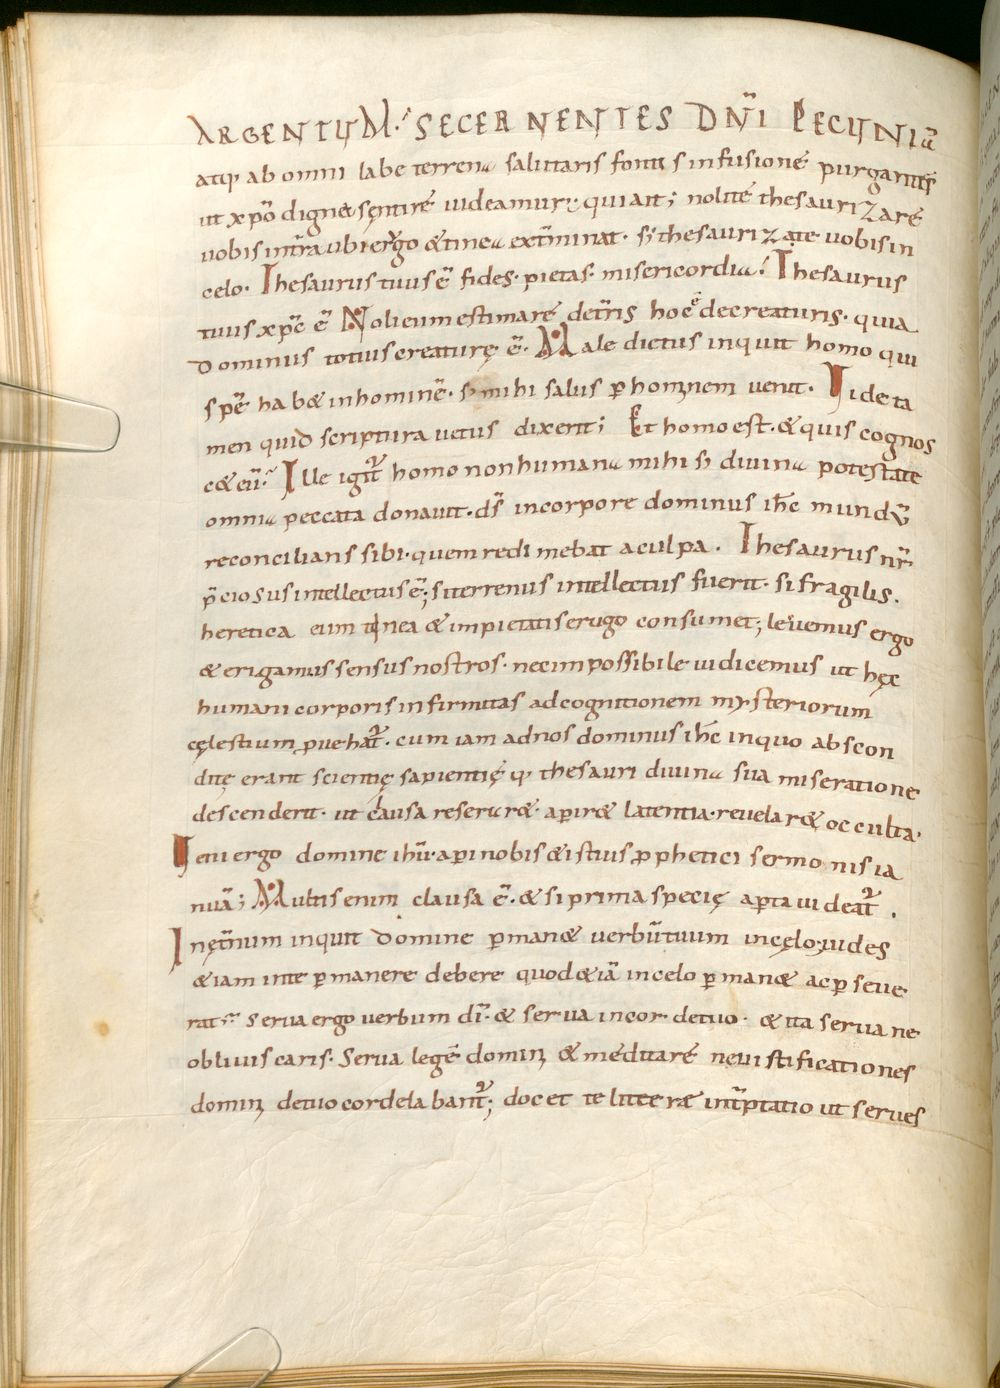 ARGENTUM·' SECERNENTES DÑI PECUNIĀ
atq; ab omni labe terrena salutaris fontis infusione purgantes
ut xp̄o digne sentire videamur; qui ait; nolite thesaurizare
vobis in tr̄a ubi ergo & tinea extm̄inat· s; thesaurizate vobis in
celo. Thesaurus tuus ē fides· pietas· misericordia; Thesaurus
tuus xp̄c ē Noli eum estimare det̄ris hoc ē de creaturis· quia
dominus totius creaturę ē. Male dictus inquit homo qui
spē hab& in homine· s; mihi salus p̄ hominem venit. Vide ta
men quid scriptura vetus dixerit; Et homo est· & quis cognos
c& eū; Ille igit̄ homo non humana mihi s; divina potestate
omnia peccata donavit· d̄s in corpore dominus ih̄c mundū
reconcilians sibi· quem redimebat a culpa. Thesaurus nr̄
p̄ciosus intellectus ē; si terrenus intellectus fuerit· si fragilis.
heretica eum tinea & impietatis erugo consumet; levemus ergo
& erigamus sensus nostros· nec impossibile iudicemus ut hęc
humani corporis infirmitas ad cognitionem mysteriorum
cęlestium p̄vehat̄. cum iam ad nos dominus ih̄c in quo abscon
ditę erant scientię sapientię q; thesauri divina sua miseratione
descenderit· ut clausa reserar&· aperir& latentia· revelar& occulta·
Veni ergo domine ih̄u· aperi nobis & istius p̄phetici sermonis ia
nuā; Multis enim clausa ē· & si prima specię aperta videat̄.
In ęt̄num inquit domine p̄man& verbū tuum in cęlo; vides
& iam in te p̄manere debere quod & iā in celo p̄man& ac p̄seve
rat; Serva ergo verbum dī· & serva in corde tuo· & ita serva ne
obliviscaris· Serva legē domini & meditare ne iustificationes
domini de tuo corde labant̄; doc& te litterae int̄ptatio ut serves